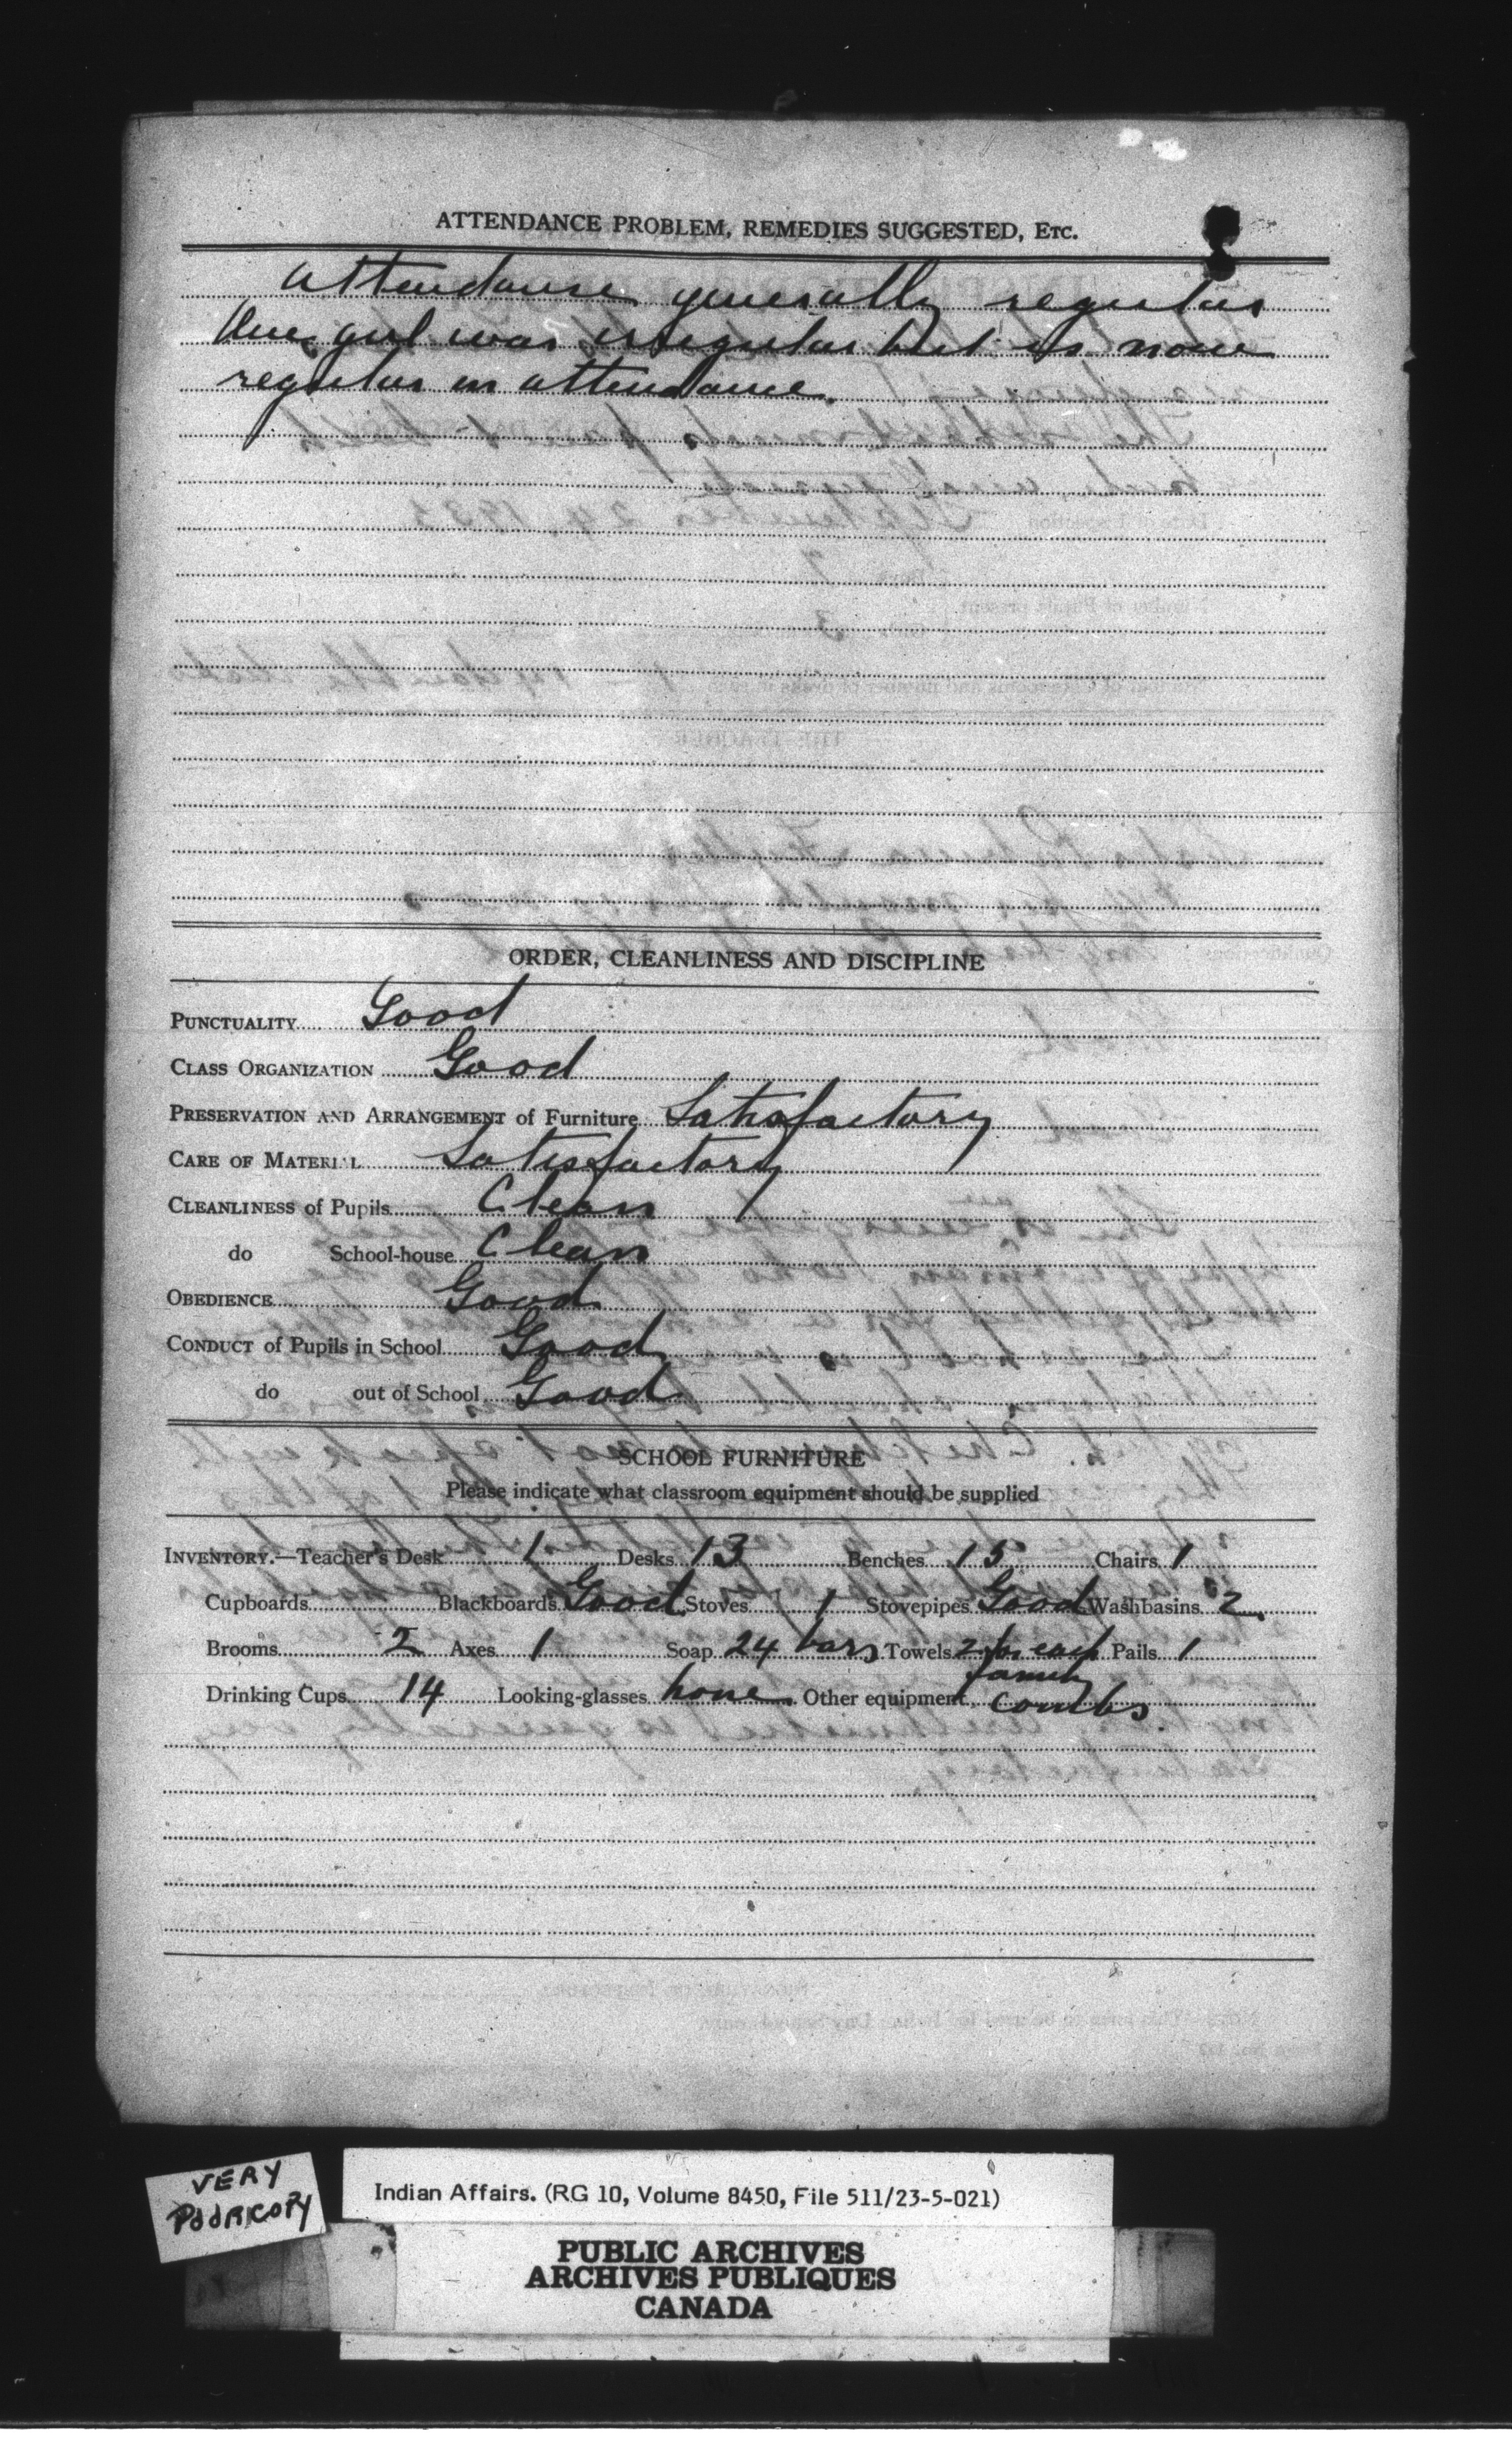 ATTENDANCE PROBLEM, REMEDIES SUGGESTED, ETC.
Attendance generally regular
One girl was irregular but is now
regular in attendance.
ORDER, CLEANLINESS AND DISCIPLINE
PUNCTUALITY Good
CLASS ORGANIZATION Good
PRESERVATION AND ARRANGEMENT of Furniture Satisfactory
CARE OF MATERIAL Satisfactory
CLEANLINESS of Pupils Clean
do School-house Clean
OBEDIENCE Good
CONDUCT of Pupils in School Good
do out of School Good
SCHOOL FURNITURE
Please indicate what classroom equipment should be supplied
INVENTORY.—Teacher's Desk 1 Desks 13 Benches 15 Chairs 1
Cupboards Blackboards Good Stoves 1 Stovepipes Good Washbasins 2
Brooms 2 Axes 1 Soap 24 bars Towels 2 for each Pails 1
family
Drinking Cups 14 Looking-glasses none Other equipment combs
VERY
POOR COPY
Indian Affairs. (RG 10, Volume 8450, File 511/23-5-021)
PUBLIC ARCHIVES
ARCHIVES PUBLIQUES
CANADA